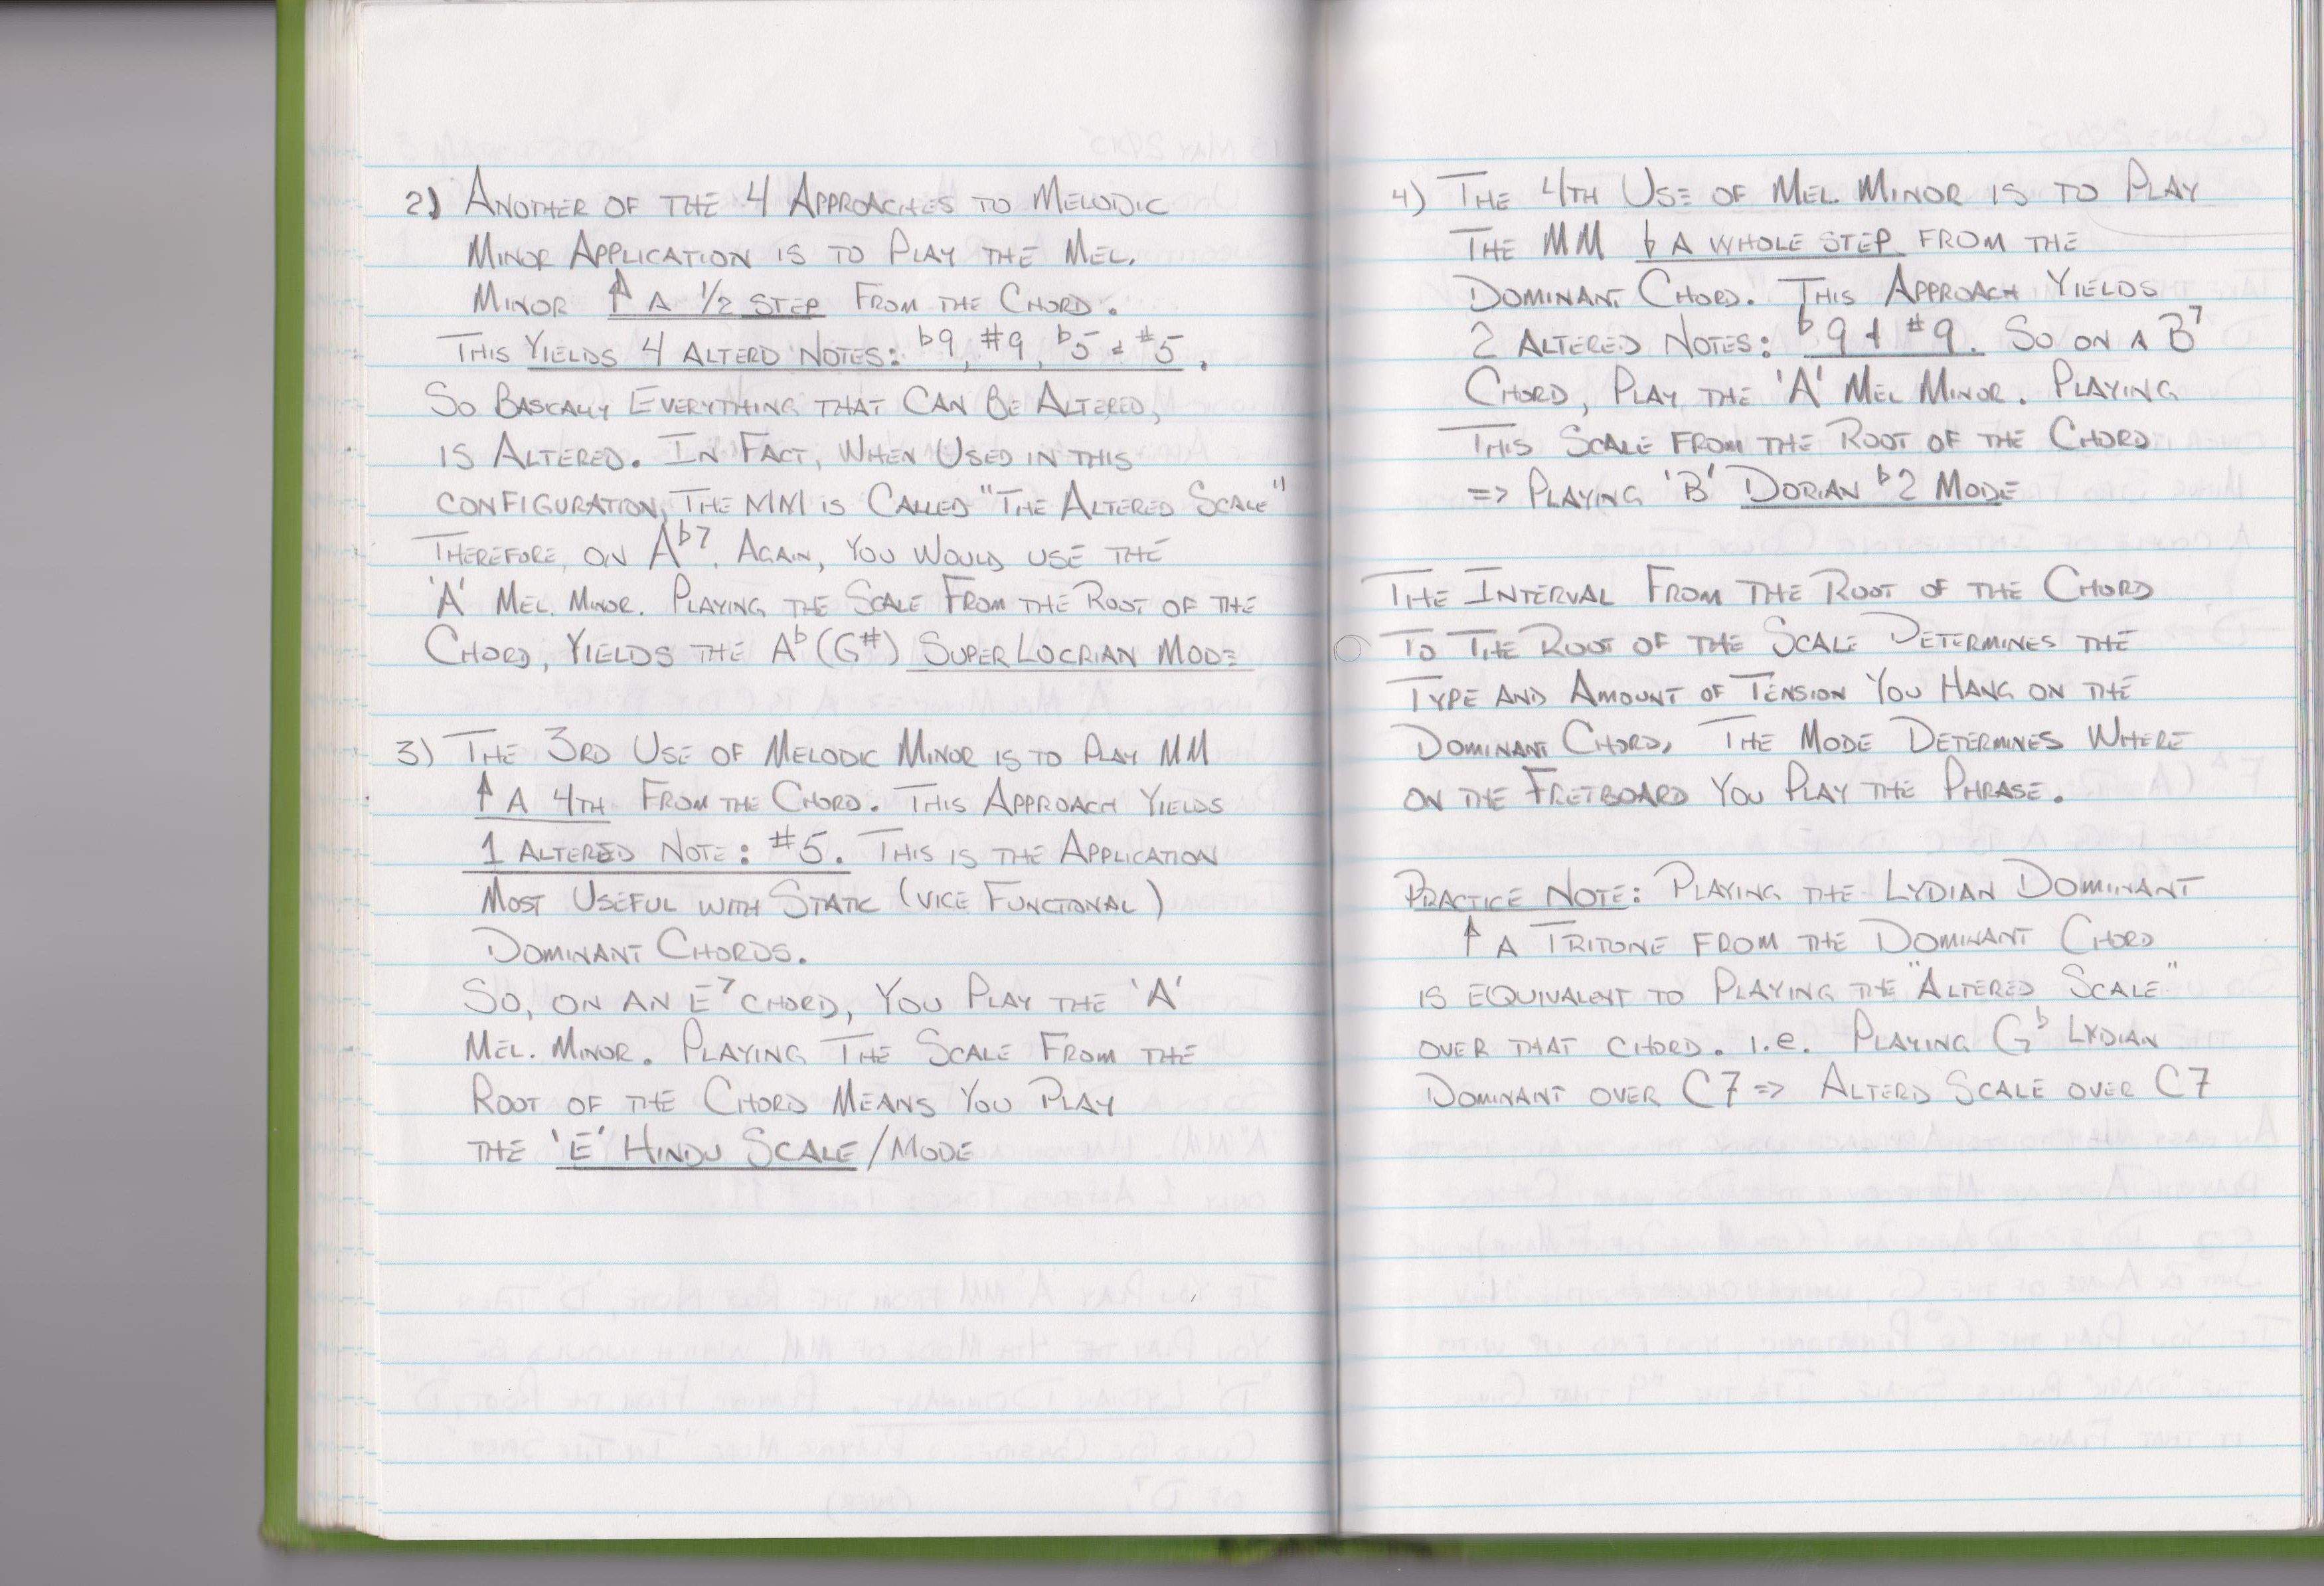 2) Another of the 4 Approaches to Melodic
Minor Application is to Play the Mel.
Minor ↑ a 1/2 step From the Chord.
This Yields 4 Alterd Notes: b9, #9, b5 & #5.
So Basically Everything that Can Be Altered,
is Altered. In Fact, When Used in this
configuration, The MM is Called "The Altered Scale"
Therefore, on Ab7. Again, you would use the
'A' Mel. Minor. Playing the Scale From the Root of the
Chord, Yields the Ab (G#) Super Locrian Mode
3) The 3rd Use of Melodic Minor is to Play MM
↑ a 4th From the Chord. This Approach Yields
1 Altered Note: #5. This is the Application
Most Useful with Static (vice Functional)
Dominant Chords.
So, on an E7 chord, You Play the 'A'
Mel. Minor. Playing The Scale From the
Root of the Chord Means You Play
the 'E' Hindu Scale/Mode
4) The 4th Use of Mel. Minor is to Play
The MM b a whole step from the
Dominant Chord. This Approach Yields
2 Altered Notes: b9 & #9. So on a B7
Chord, Play the 'A' Mel Minor. Playing
This Scale from the Root of the Chord
=> Playing 'B' Dorian b2 Mode
The Interval From the Root of the Chord
To The Root of the Scale Determines the
Type and Amount of Tension You Hang on the
Dominant Chord, The Mode Determines Where
on the Fretboard You Play the Phrase.
Practice Note: Playing the Lydian Dominant
↑ a Tritone from the Dominant Chord
is equivalent to Playing the "Altered Scale"
over that chord. i.e. Playing Gb Lydian
Dominant over C7 => Alterd Scale over C7